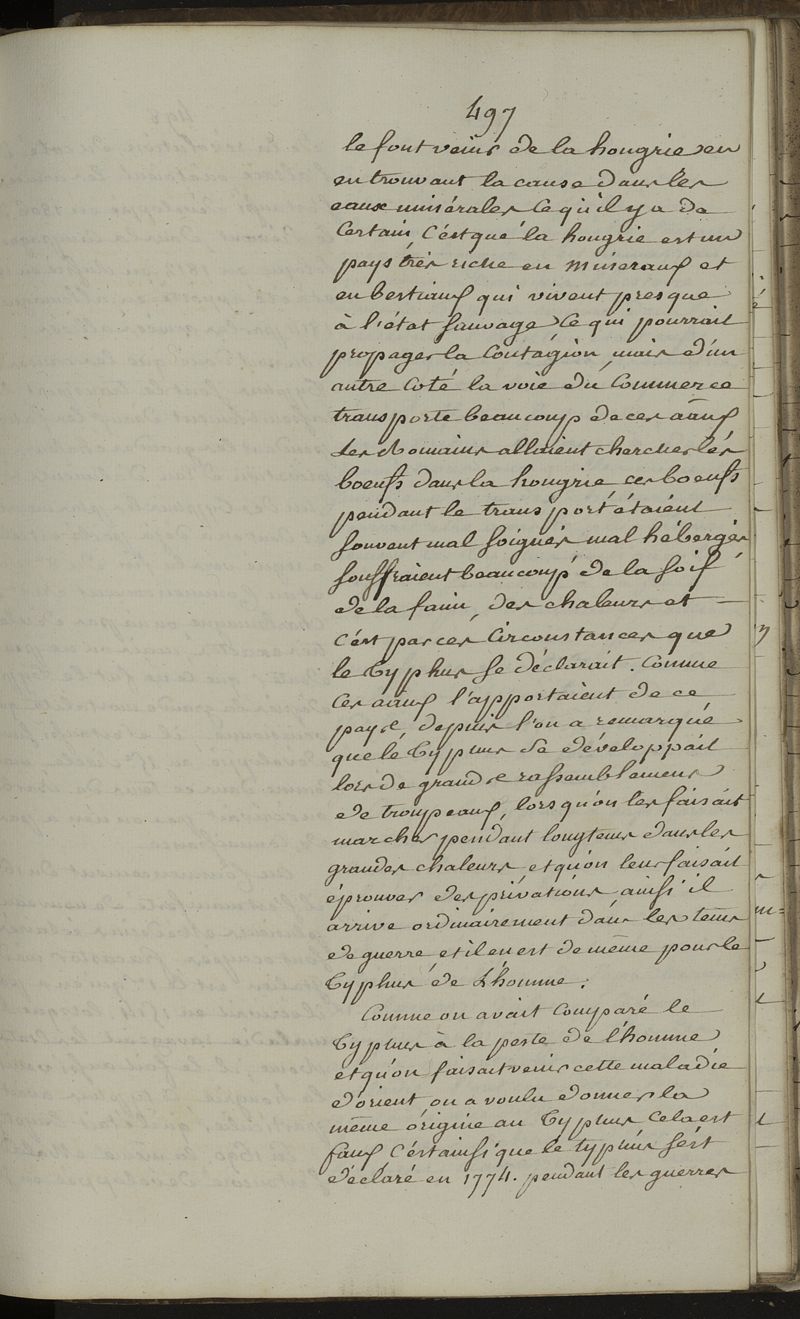 497
le font venir de la hongrie en
en trouvant la cause dans les
eaux minérales ce qu'il y a de
Certain, C'est que la hongrie est un
pays très riche en mineraux et
en bestiaux qui vivent presque
à l'état sauvage ce qui pourrait
propager la Contagion, mais d'un
autre Coté la voie du Commerce
transporte beaucoup de ces aãux
Les Romains allaient chercher les
boeufs dans la hongrie, ces boeufs
pendant le transport étaient
souvent mal soignés mal hébergés
souffraient beaucoup de la soif
de la faim, des chaleurs et —
C'est par ces Circonstances que
le Typhus se déclarait. Comme
Ces aãux l'apportaient de ce
pays, depuis l'on a remarqué
que le Typhus se développait
lors de grands rassemblemens
de troupeaux, lorsqu'on les faisait
marcher pendant longtems dans les
grandes chaleurs, et qu'on leur faisait
éprouver des privations, ainsi il
arrive ordinairement dans les tems
de guerre, et il en est de même pour le
Typhus de L'homme.
Comme on avait Comparé le
Typhus à la peste de l'homme
et qu'on faisait venir cette maladie
d'orient, on a voulu donner la
même origine au Typhus Cela est
faux C'est ainsi que le typhus s'est
déclaré en 1774. pendant les guerres